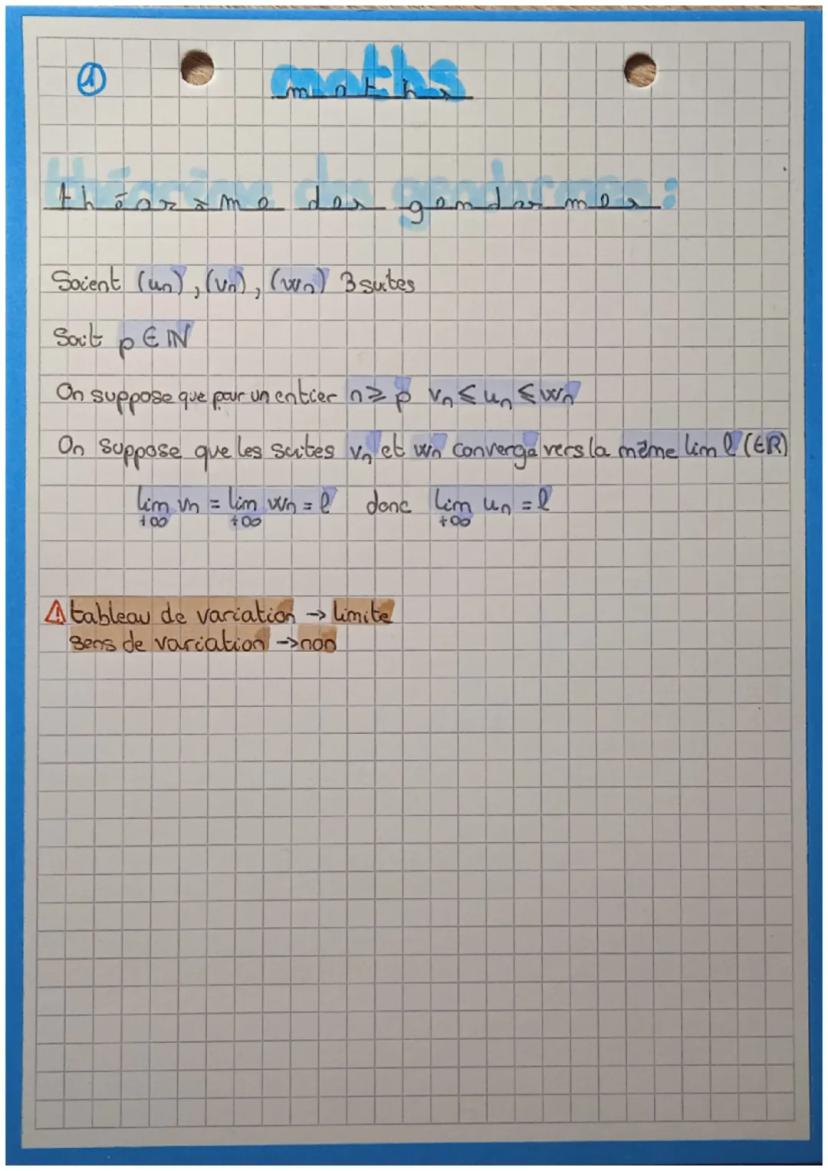 ①
maths
théorème des gendarmes :
Soient (un), (vn), (wn) 3 suites
Soit p ∈ ℕ
On suppose que pour un entier n ≥ p vn ≤ un ≤ wn
On suppose que les suites vn et wn converge vers la même lim l (∈R)
lim vn = lim wn = l donc lim un = l
+∞ +∞ +∞
⚠ tableau de variation → limite
sens de variation → non